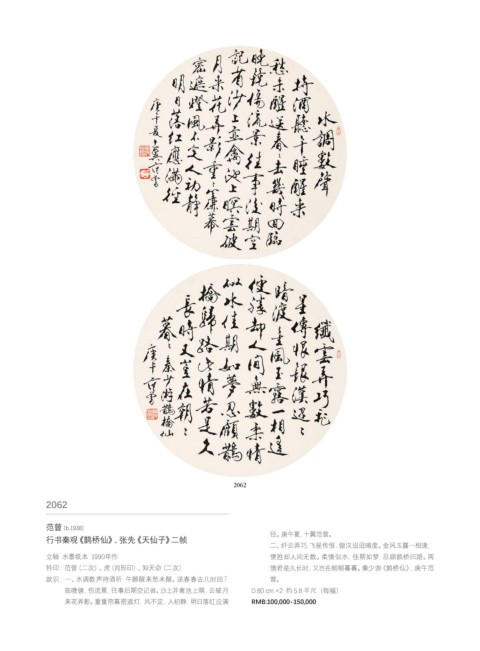 水調數聲
持酒聽午醉醒來
愁未醒送春春去幾時回臨
晚鏡傷流景往事後期空
記省沙上並禽池上暝雲破
月來花弄影重重簾幕
密遮燈風不定人初靜
明日落紅應滿徑
庚午夏十翼范曾
纖雲弄巧飛
星傳恨銀漢迢迢
暗渡金風玉露一相逢
便勝却人間無數柔情
似水佳期如夢忍顧鵲
橋歸路兩情若是久
長時又豈在朝朝
暮暮秦少游鵲橋仙
庚午范曾
2062
2062
范曾 (b.1938)
行书秦观《鹊桥仙》、张先《天仙子》二帧
立轴 水墨纸本 1990年作
钤印:范曾(二次)、虎(肖形印)、知天命(二次)
款识:一、水调数声持酒听,午醉醒来愁未醒。送春春去几时回?
临晚镜,伤流景,往事后期空记省。沙上并禽池上暝,云破月
来花弄影。重重帘幕密遮灯,风不定,人初静,明日落红应满
径。庚午夏,十翼范曾。
二、纤云弄巧,飞星传恨,银汉迢迢暗度。金风玉露一相逢,
便胜却人间无数。柔情似水,佳期如梦,忍顾鹊桥归路。两
情若是久长时,又岂在朝朝暮暮。秦少游《鹊桥仙》,庚午范
曾。
D:80 cm.×2 约 5.8 平尺(每幅)
RMB:100,000-150,000